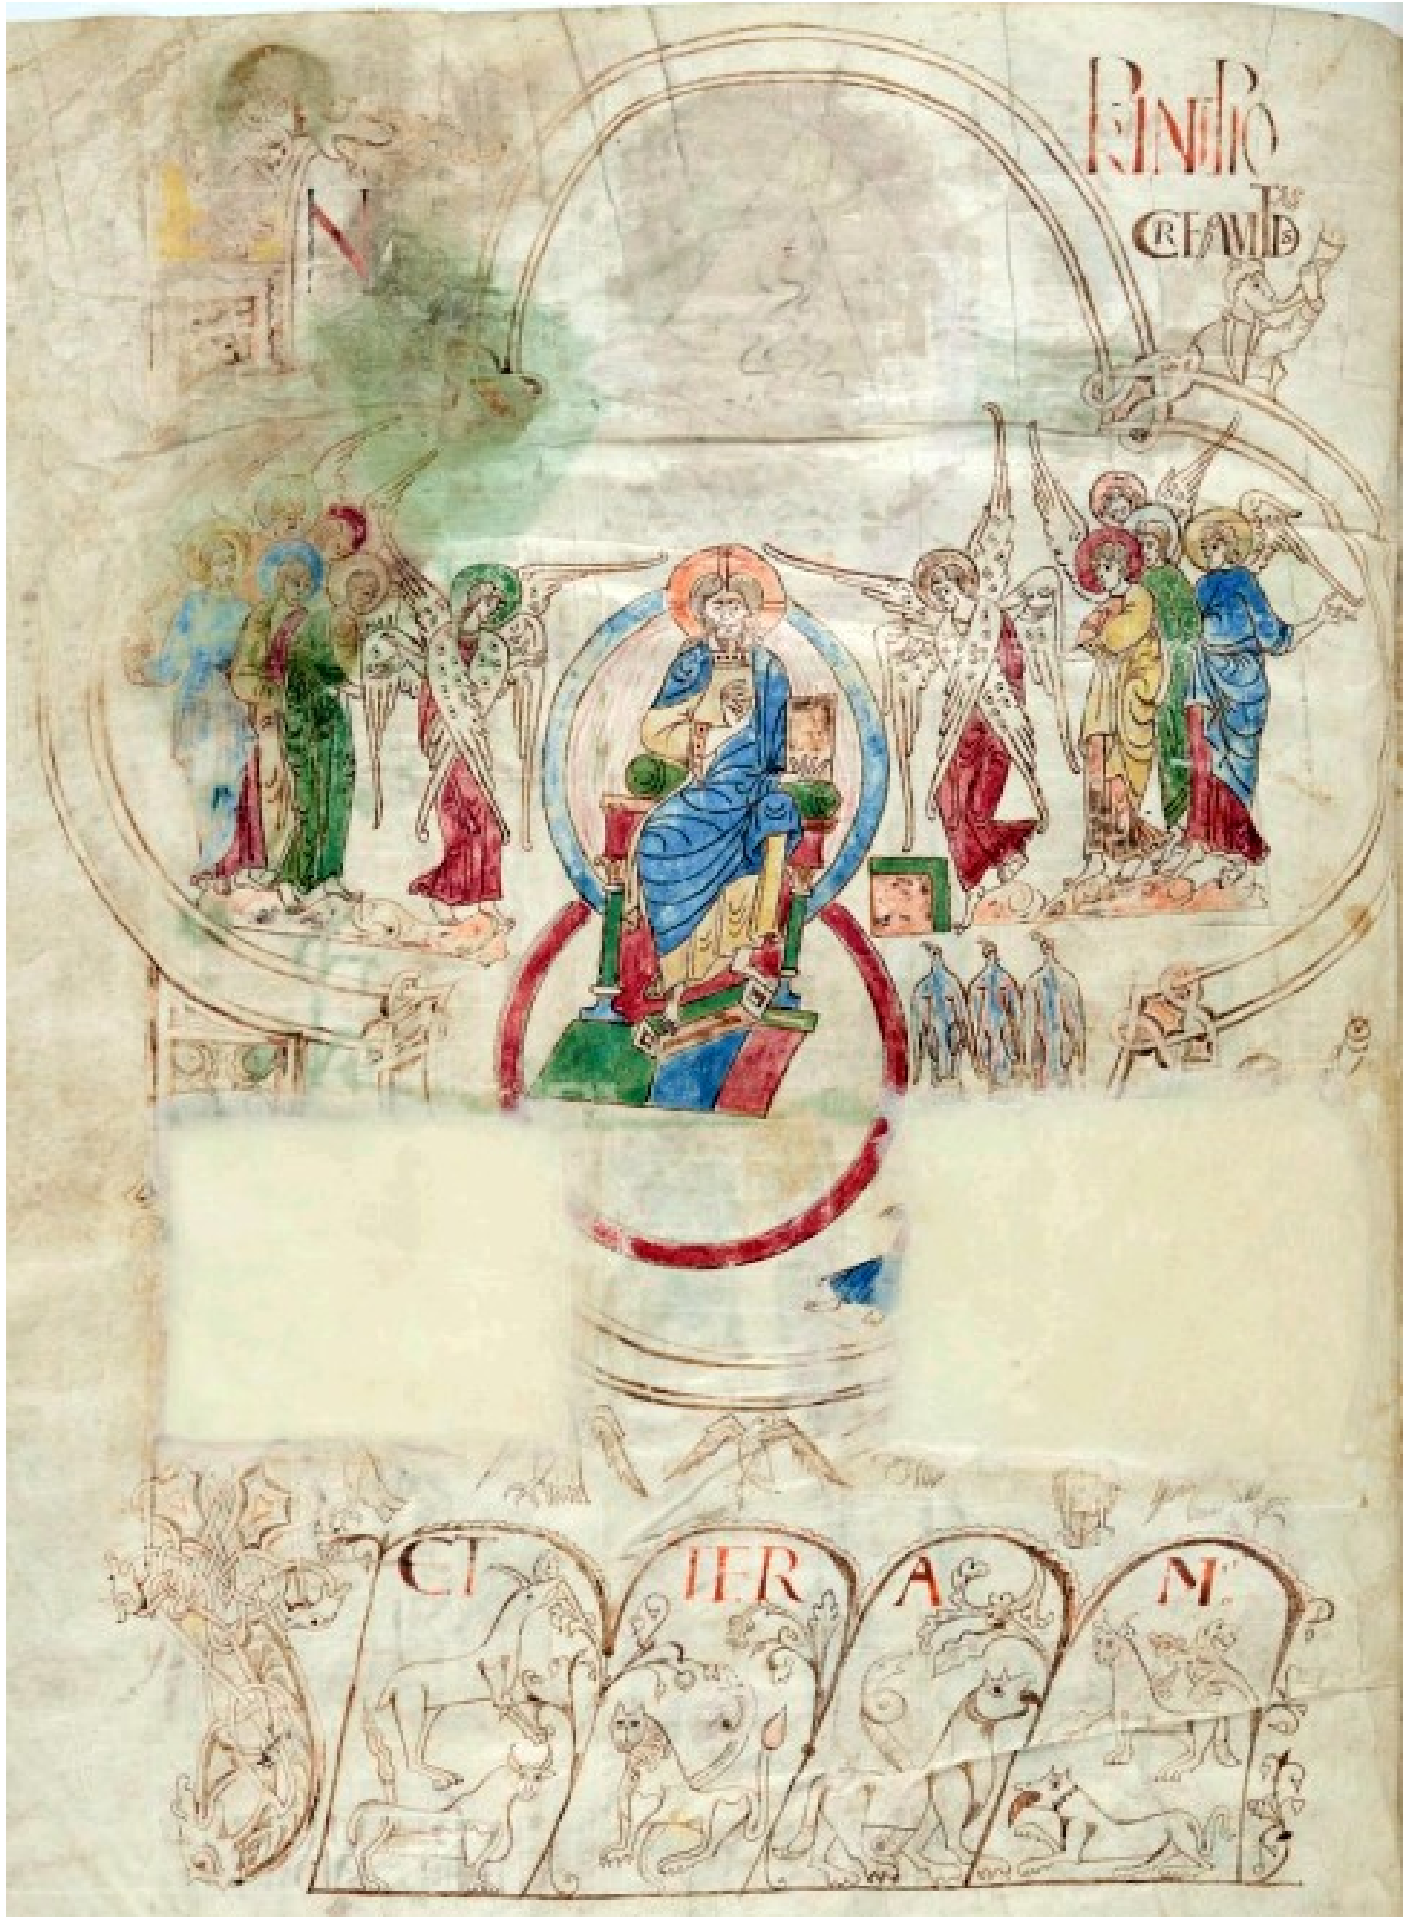 N
PRINCIPIO
CREAVIT DS
ET TER A M